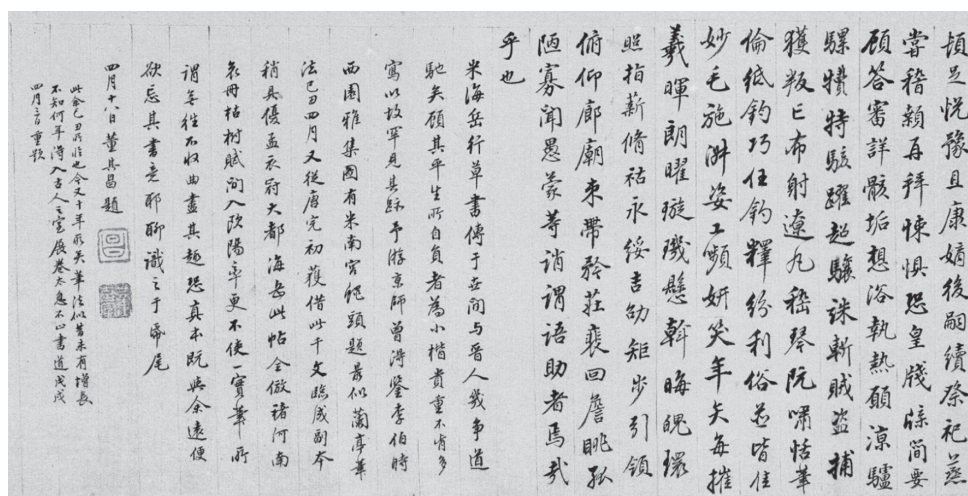 頓足悅豫且康嫡後嗣續祭祀蒸
嘗稽顙再拜悚懼恐皇牋牒簡要
顧答審詳骸垢想浴執熱願涼驢
騾犢特駭躍超驤誅斬賊盜捕
獲叛亡布射遼丸嵇琴阮嘯恬筆
倫紙鈞巧任鈞釋紛利俗並皆佳
妙毛施淑姿工頻妍笑年矢每摧
羲暉朗曜璇璣懸斡晦魄環
照指薪脩祜永綏吉劭矩步引領
俯仰廊廟束帶矜莊裴回詹眺孤
陋寡聞愚蒙等誚謂語助者焉哉
乎也
米海岳行草書傳于世間与晉人幾爭道
馳矣顧其平生所自負者為小楷貴重不肯多
寫以故罕見其跡予游京師曾得鑒李伯時
西園雅集圖有米南宮蠅頭題最似蘭亭筆
法己丑四月又從唐完初獲借此千文臨成副本
稍具優孟衣冠大都海岳此帖全倣褚河南
哀冊枯樹賦間入歐陽率更不使一實筆所
謂無往不收曲盡其趣恐真本既與余遠便
欲忘其書意耶聊識之于帋尾
四月十八日董其昌題
此余己丑所臨也今又十年所矣筆法似昔未有增長
不知何年得入古人之室展卷太息不止書道戊戌
四月三日重題